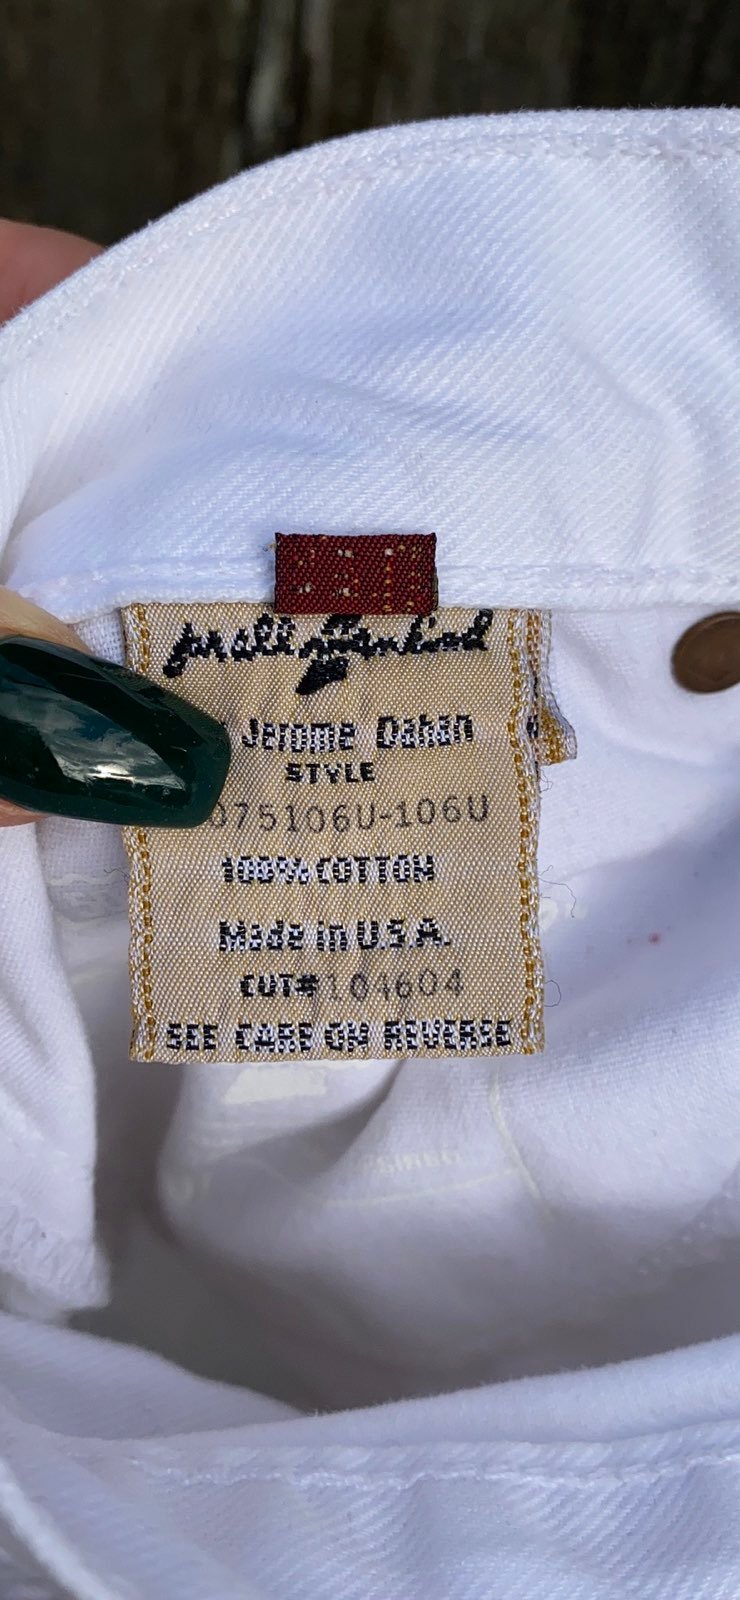 for all mankind
Jerome Dahan
STYLE
075106U-106U
100% COTTON
Made in U.S.A.
CUT# 104604
SEE CARE ON REVERSE